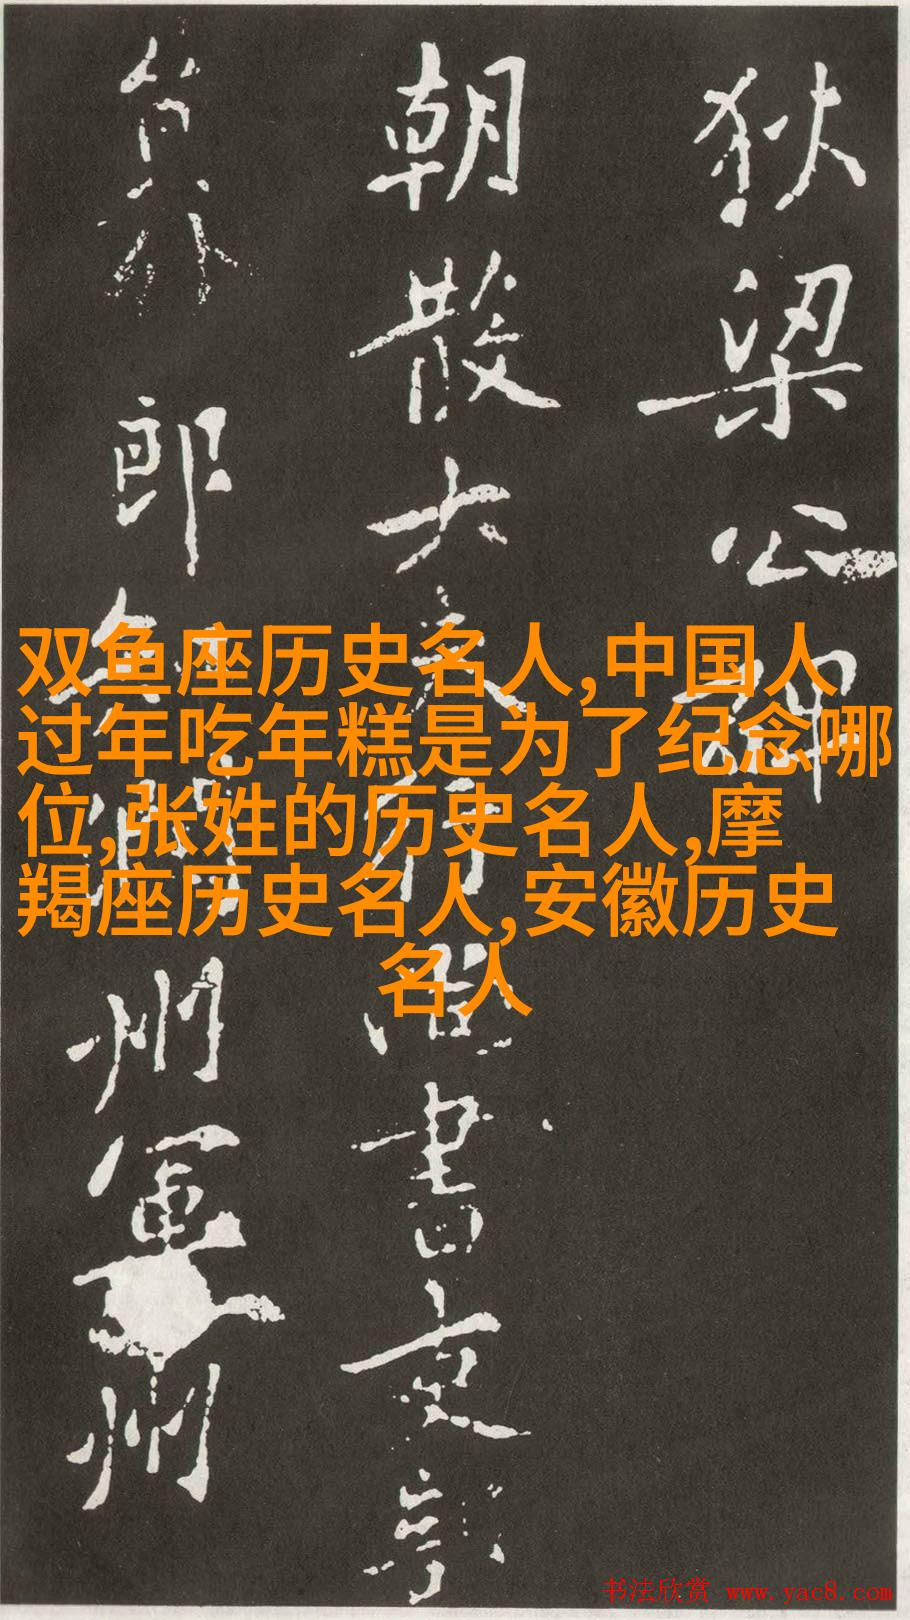 狄梁公碑
朝散大夫行尚書吏部
員外郎知潤州軍州
双鱼座历史名人,中国人
过年吃年糕是为了纪念哪
位,张姓的历史名人,摩
羯座历史名人,安徽历史
名人
书法欣赏 www.yac8.com